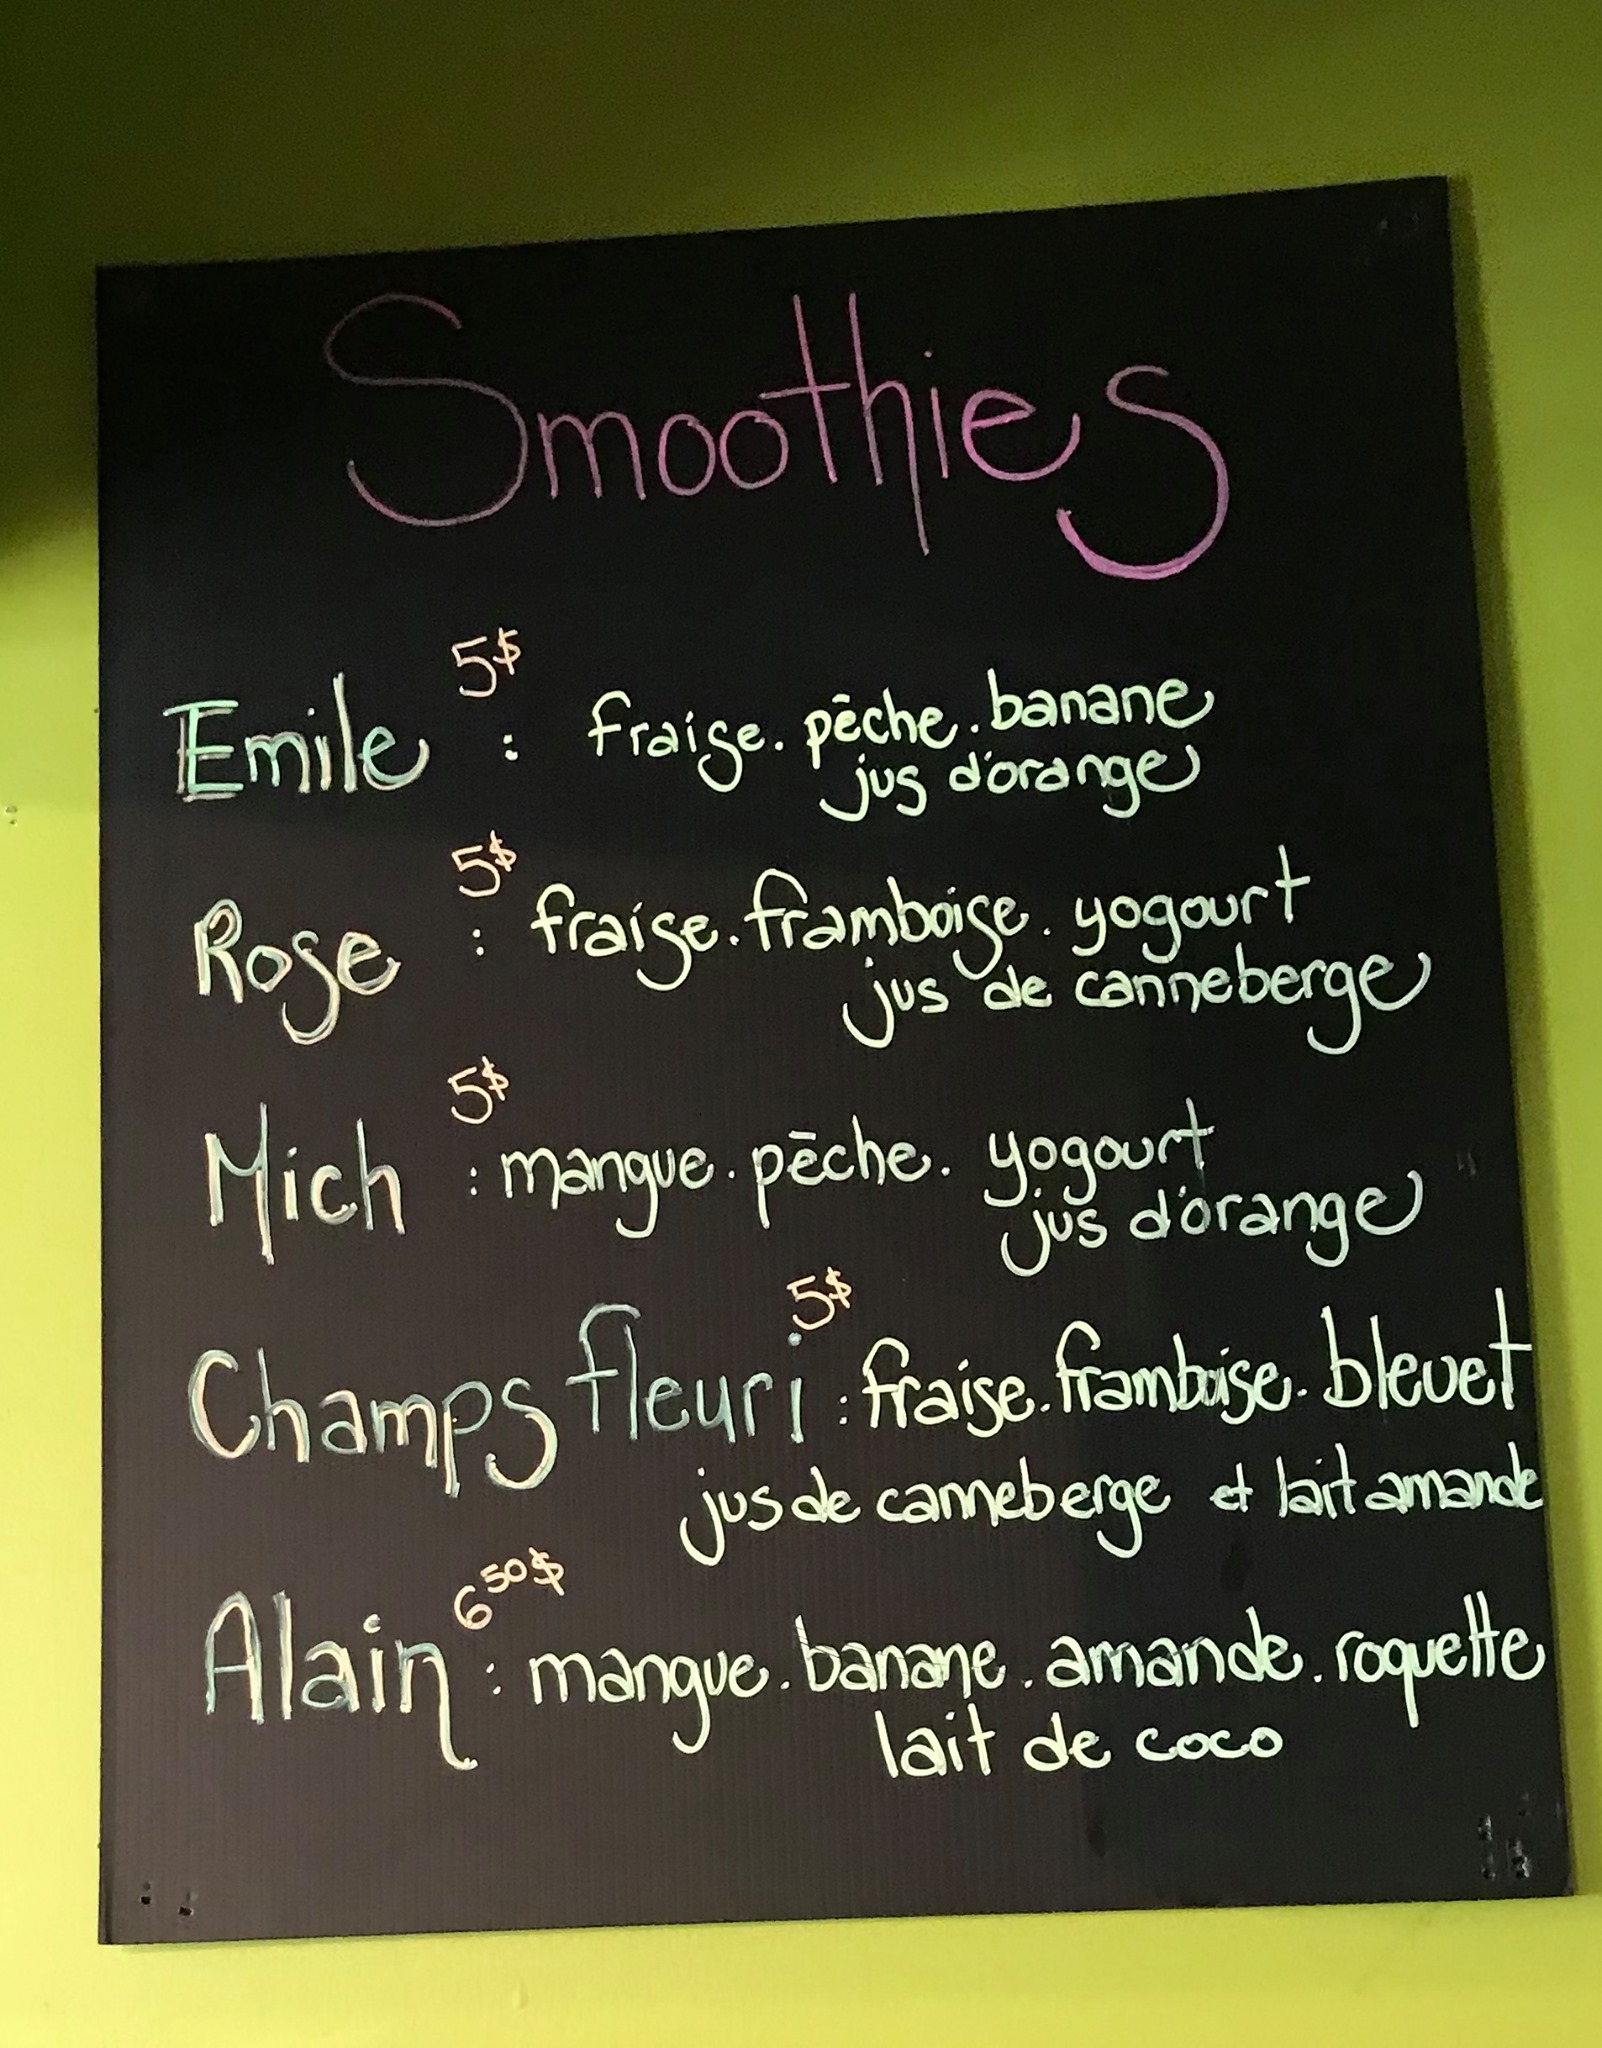 Smoothies
Emile 5$ : fraise. pêche. banane
jus d'orange
Rose 5$ : fraise. framboise. yogourt
jus de canneberge
Mich 5$ : mangue. pêche. yogourt
jus d'orange
Champs fleuri 5$ : fraise. framboise. bleuet
jus de canneberge et lait amande
Alain 6 50$ : mangue. banane. amande. roquette
lait de coco